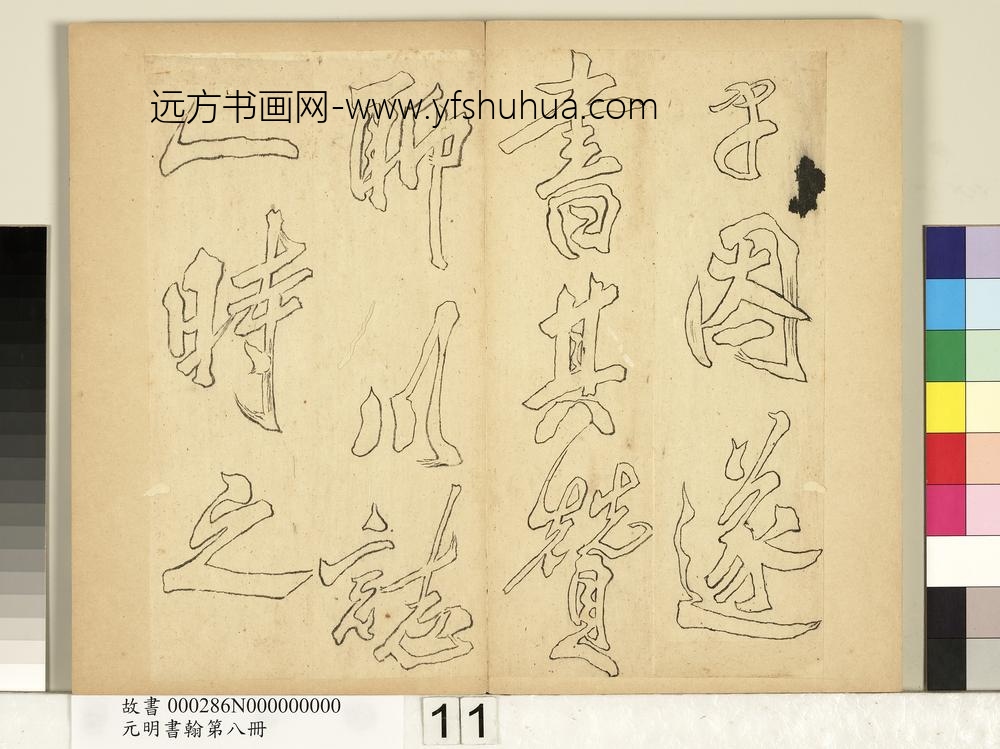 子因遂
書其贊
聊以誌
一時之
远方书画网-www.yfshuhua.com
故書 000286N000000000
元明書翰第八冊
11